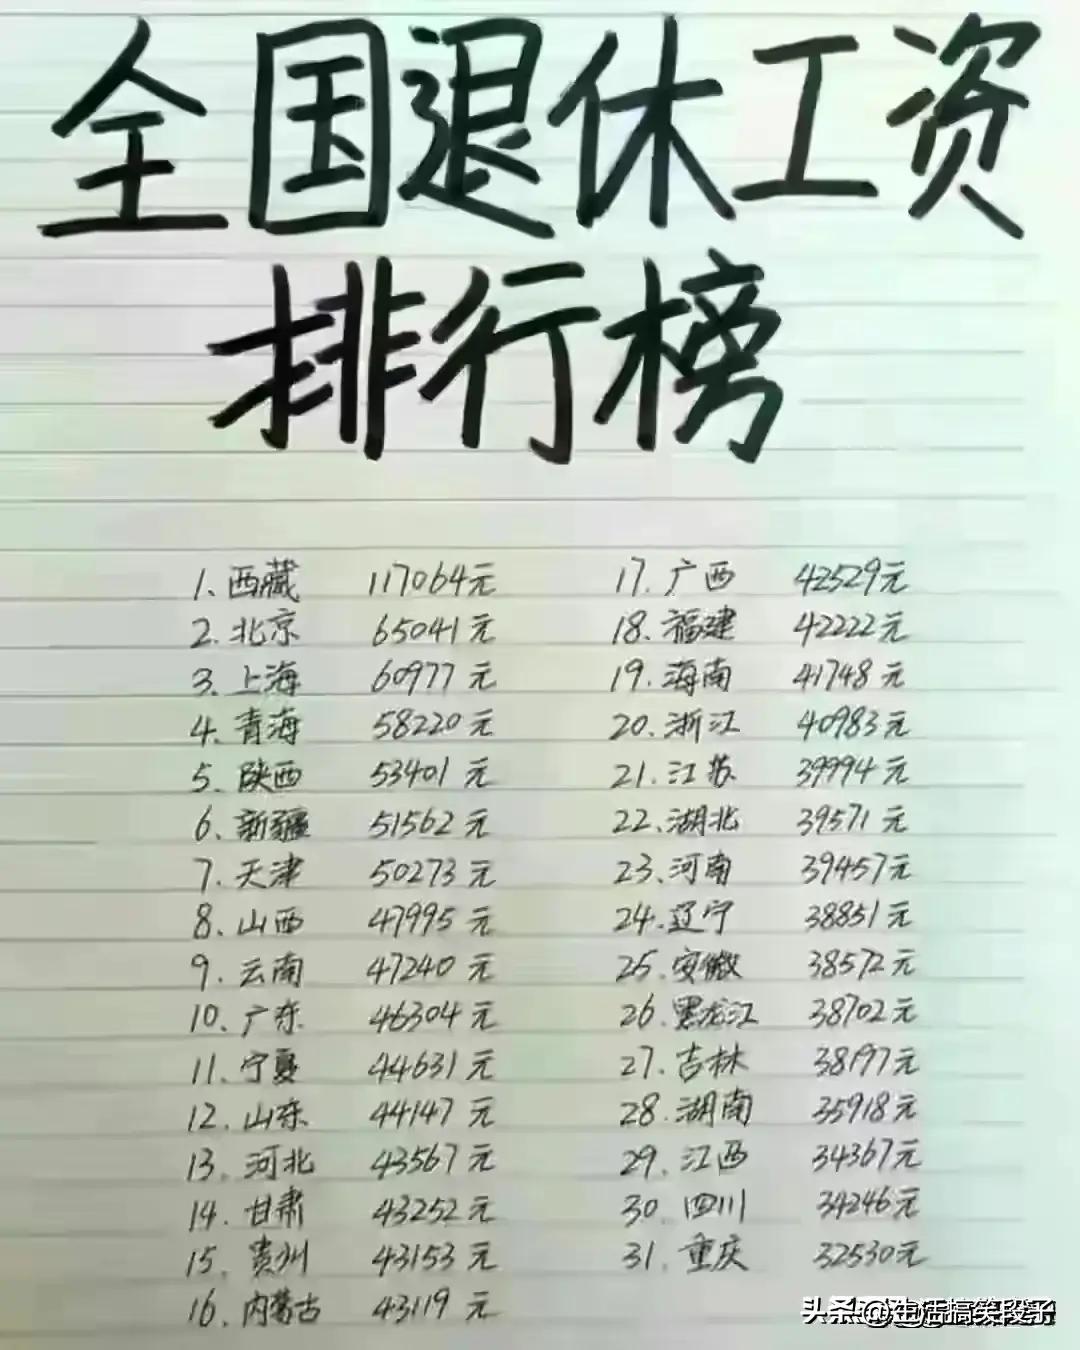 全国退休工资
排行榜
1. 西藏 117064元
2. 北京 65041元
3. 上海 60977元
4. 青海 58220元
5. 陕西 53401元
6. 新疆 51562元
7. 天津 50273元
8. 山西 47995元
9. 云南 47240元
10. 广东 46304元
11. 宁夏 44631元
12. 山东 44147元
13. 河北 43567元
14. 甘肃 43252元
15. 贵州 43153元
16. 内蒙古 43119元
17. 广西 42529元
18. 福建 42222元
19. 海南 41748元
20. 浙江 40983元
21. 江苏 39994元
22. 湖北 39571元
23. 河南 39457元
24. 辽宁 38851元
25. 安徽 38572元
26. 黑龙江 38702元
27. 吉林 38197元
28. 湖南 35918元
29. 江西 34367元
30. 四川 34246元
31. 重庆 32530元
头条@生活搞笑段子